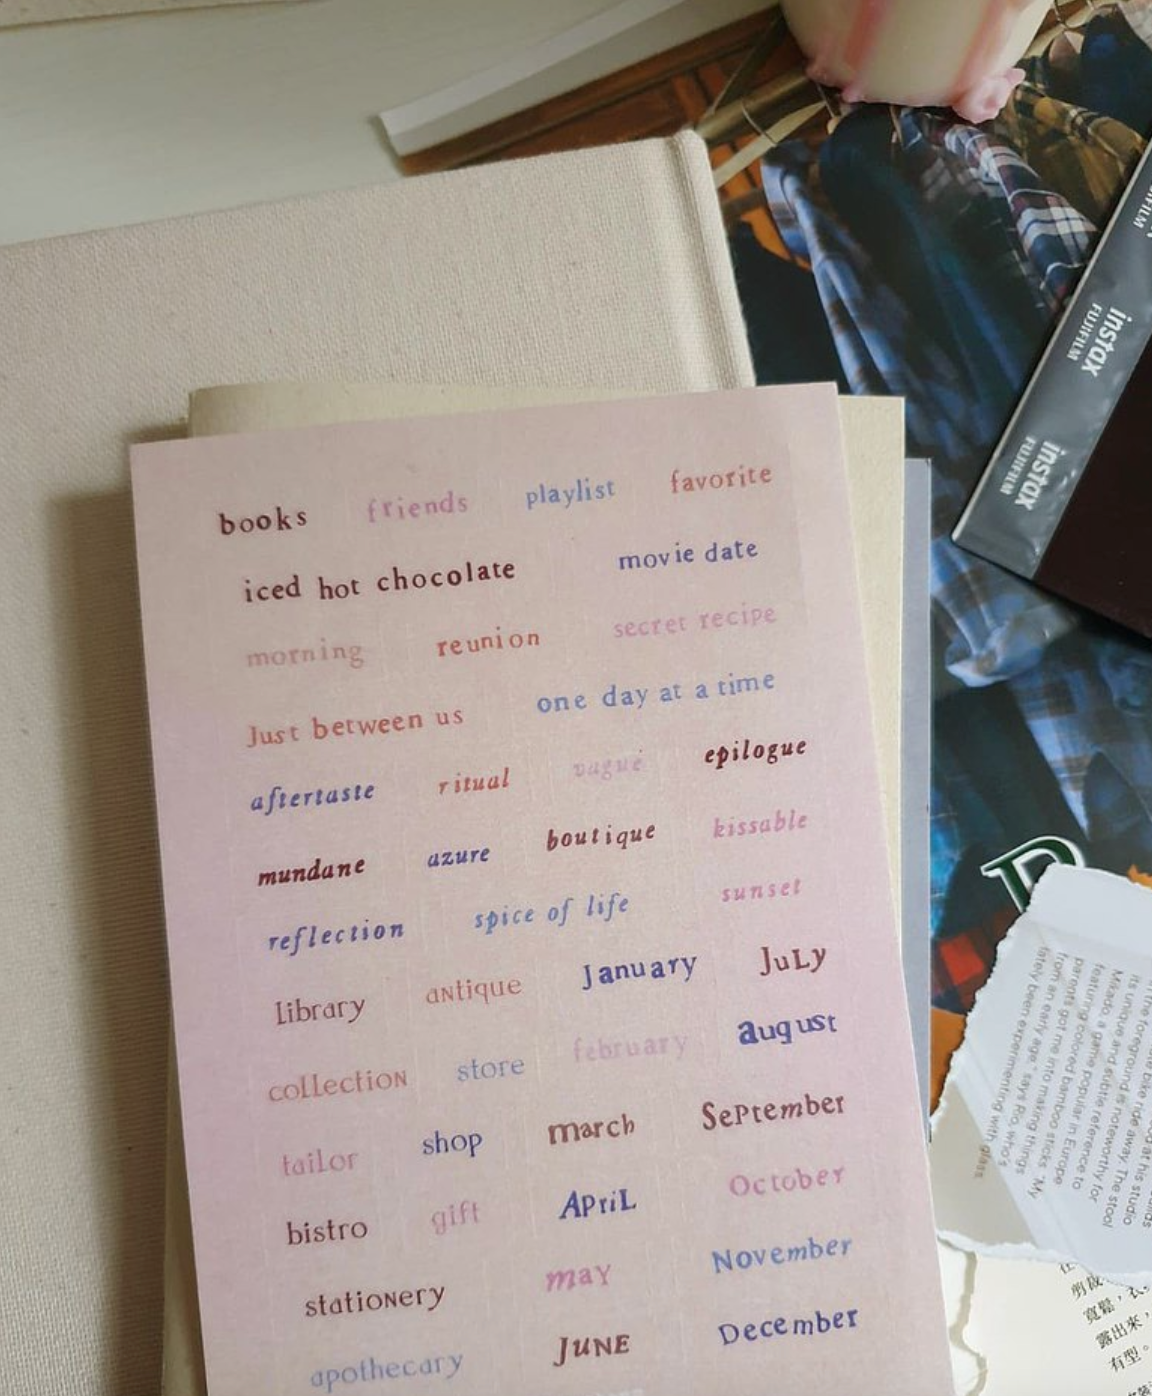 books friends playlist favorite
iced hot chocolate movie date
morning reunion secret recipe
Just between us one day at a time
aftertaste ritual vague epilogue
mundane azure boutique kissable
reflection spice of life sunset
library aNtique January JuLy
coLLectioN store february august
tailor shop march SePtember
bistro gift APriL October
statioNery may November
apothecary JuNE December
instax
FUJIFILM
instax
FUJIFILM
its unique and subtle reference to
Mikado, a game popular in Europe
featuring colored bamboo sticks. "My
parents got me into making things
from an early age," says Rio, who's
lately been experimenting with glass.
寬鬆，衣
露出來，
有型。